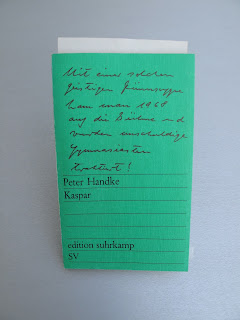 Mit einer solchen
geistigen Dünnsuppe
kam man 1968
auf die Bühne und
wurden unschuldige
Gymnasiasten
traktiert!
Peter Handke
Kaspar
edition suhrkamp
SV